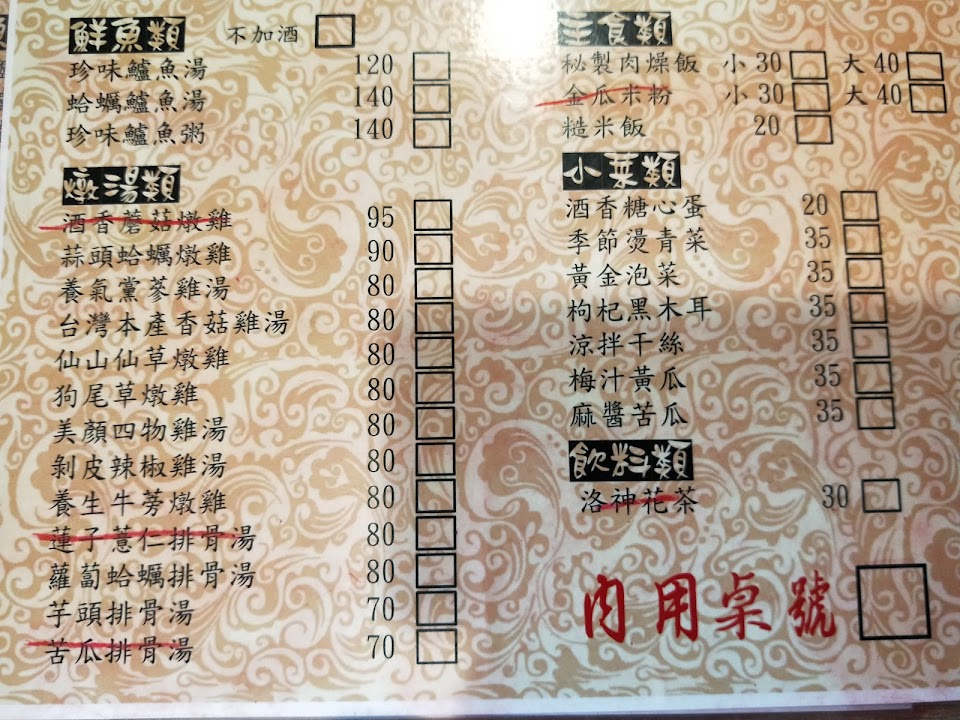 鮮魚類 不加酒
珍味鱸魚湯 120
蛤蠣鱸魚湯 140
珍味鱸魚粥 140
燉湯類
酒香蘑菇燉雞 95
蒜頭蛤蠣燉雞 90
養氣黨蔘雞湯 80
台灣本產香菇雞湯 80
仙山仙草燉雞 80
狗尾草燉雞 80
美顏四物雞湯 80
剝皮辣椒雞湯 80
養生牛蒡燉雞 80
蓮子薏仁排骨湯 80
蘿蔔蛤蠣排骨湯 80
芋頭排骨湯 70
苦瓜排骨湯 70
主食類
秘製肉燥飯 小30 大40
金瓜米粉 小30 大40
糙米飯 20
小菜類
酒香糖心蛋 20
季節燙青菜 35
黃金泡菜 35
枸杞黑木耳 35
涼拌干絲 35
梅汁黃瓜 35
麻醬苦瓜 35
飲料類
洛神花茶 30
內用桌號